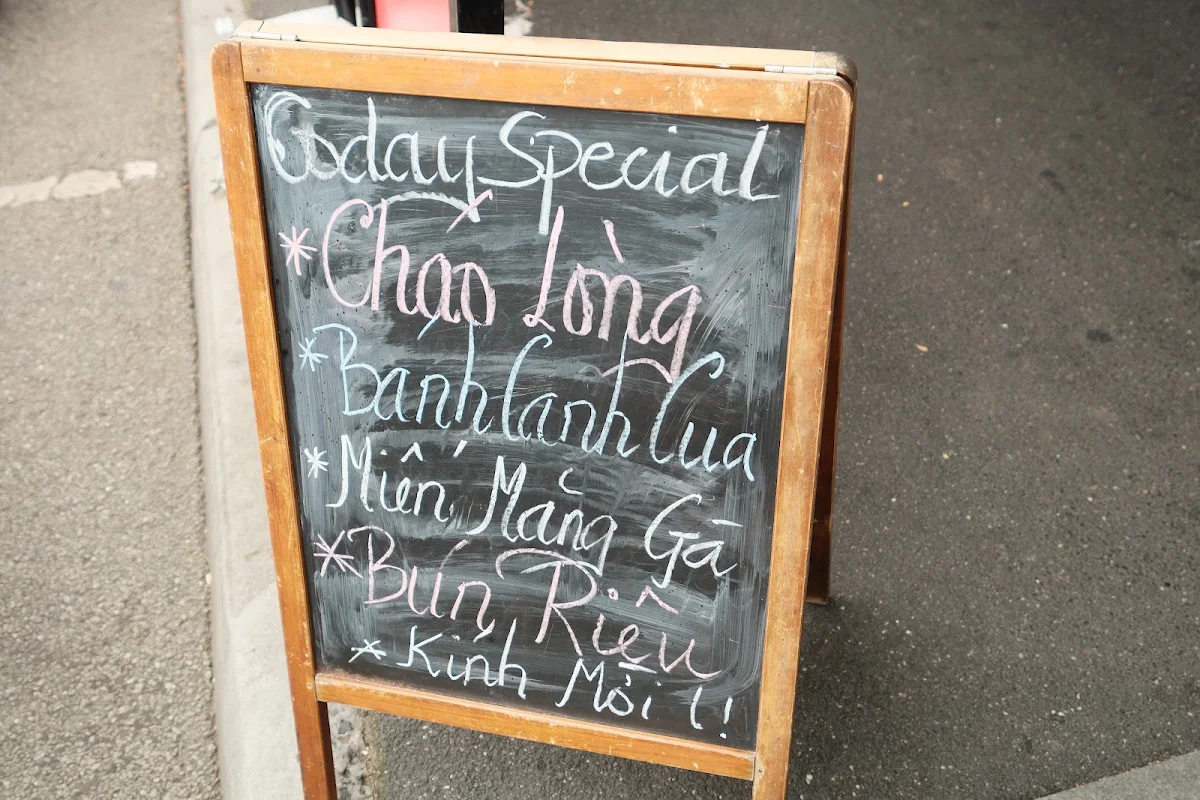 Today Special
* Cháo Lòng
* Bánh Canh Cua
* Miến Măng Gà
* Bún Riêu
* Kính Mời !!